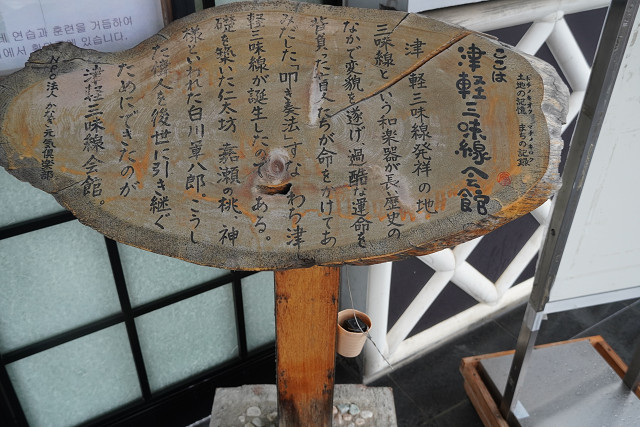 ここは
津軽三味線会館
土地の記憶 まちの記録
津軽三味線発祥の地
三味線という和楽器が長い歴史の
なかで変貌を遂げ、過酷な運命を
背負った盲人たちが命をかけてあ
みだした「叩き奏法」すなわち津
軽三味線が誕生したのである。
礎を築いた太坊、嘉瀬の桃、神
様といわれた白川軍八郎、こうし
た偉人を後世に引き継ぐ
ためにできたのが
津軽三味線会館。
NPO法人 かなぎ元気倶楽部
연습과 훈련을 거듭하여
있습니다.